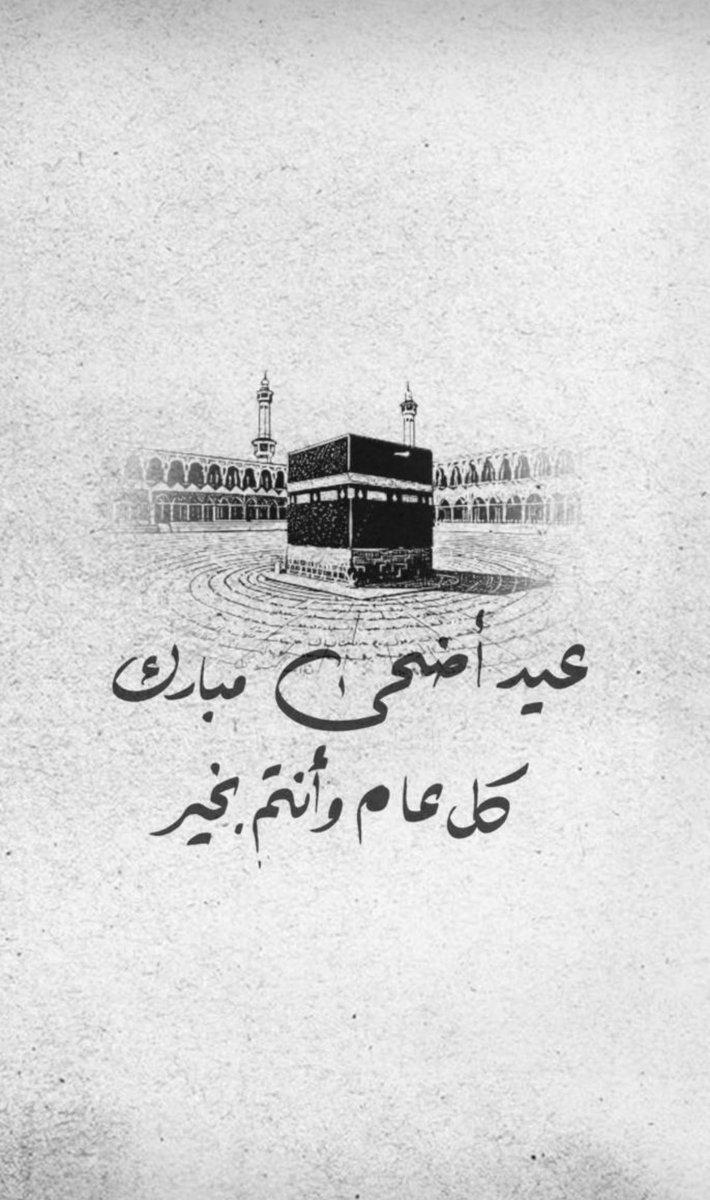 عيد أضحى مبارك
كل عام وأنتم بخير